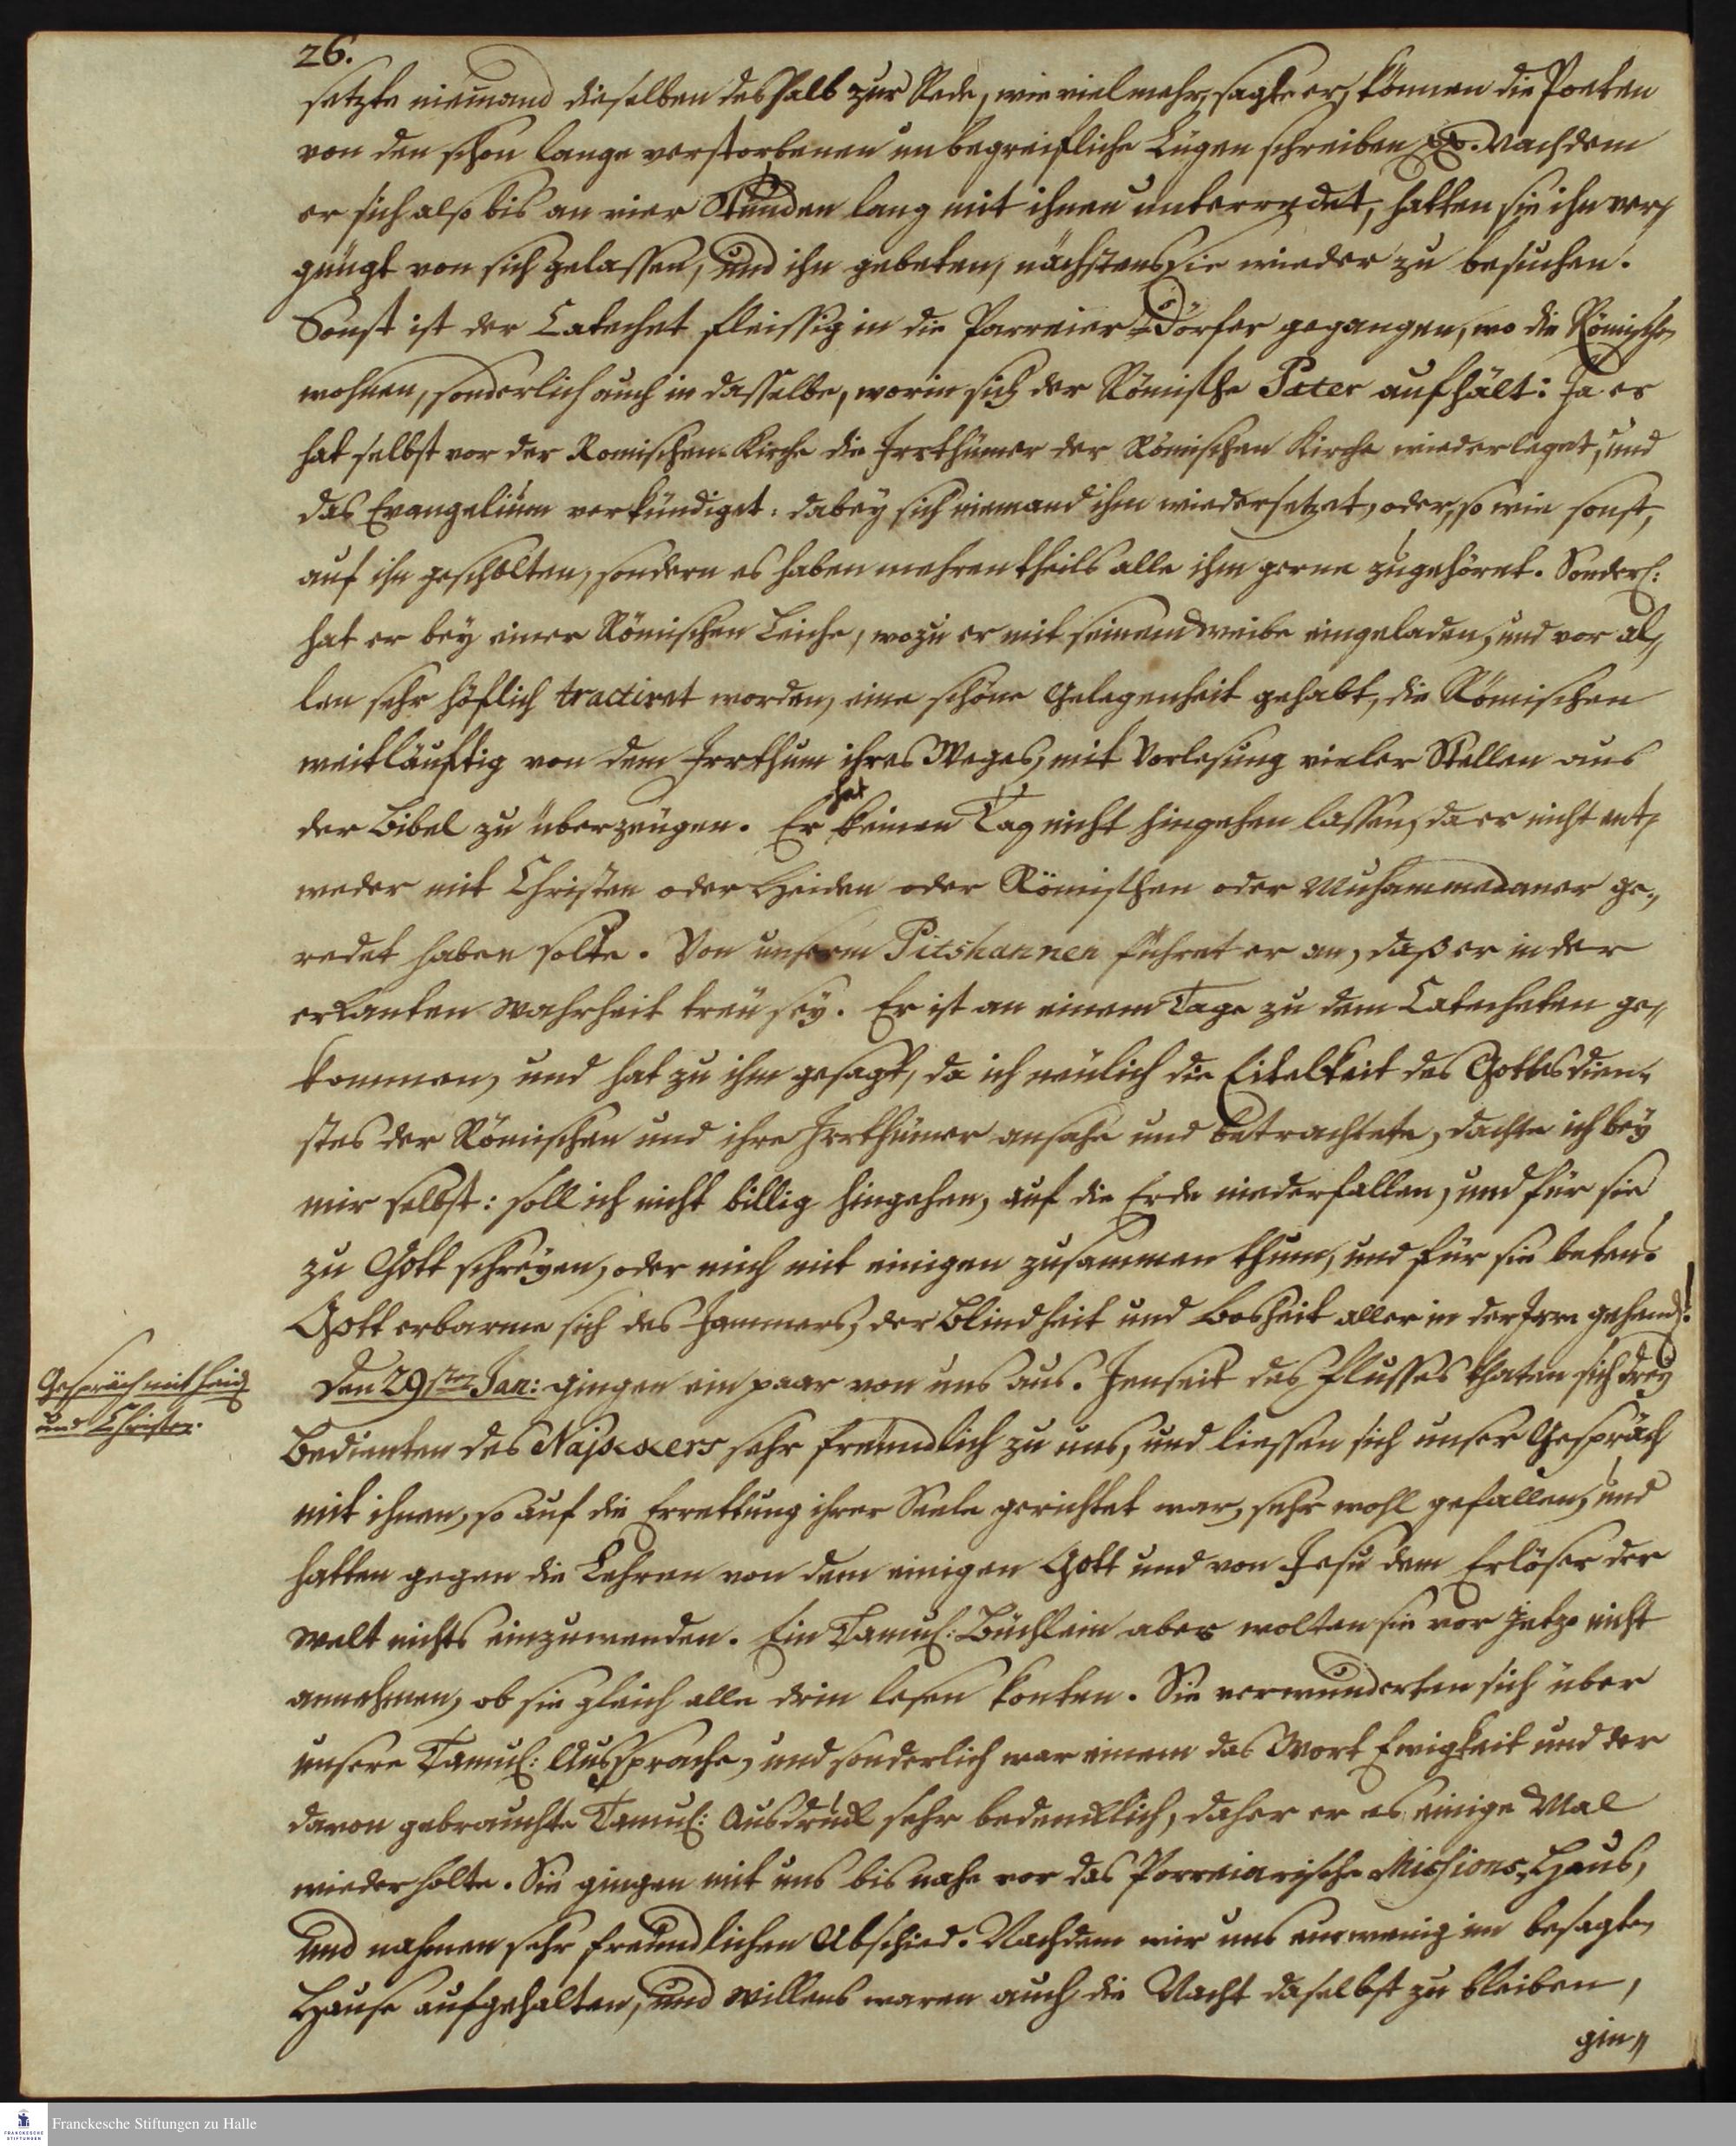 26.
setzte niemand dieselben deshalb zur Rede, wie vielmehr, sagte er, können die Poeten
von den schon lange verstorbenen unbegreifliche Lügen schreiben pp. Nachdem
er sich also bis an vier Stunden lang mit ihnen unterredet, hatten sie ihn ver-
gnügt von sich gelassen, und ihn gebeten, nächstens sie wieder zu besuchen.
Sonst ist der Catechet fleissig in die Parreier-Dörfer gegangen, wo die Römische
wohnen, sonderlich auch in dasselbe, worin sich der Römische Pater aufhält: Ja er
hat selbst vor der Romischen Kirche die Irrthümer der Römischen Kirche wiederleget, und
das Evangelium verkündiget: dabey sich niemand ihm wiedersetzet, oder, so wie sonst,
auf ihn gescholten, sondern es haben mehrentheils alle ihm gerne zugehöret. Sonderl:
hat er bey einer Römischen Leiche, wozu er mit seinem Weibe eingeladen, und vor al-
len sehr höflich tractiret worden, eine schöne Gelegenheit gehabt, die Römischen
weitläuftig von dem Irrthum ihres Weges, mit Vorlesung vieler Stellen aus
der Bibel zu überzeugen. Er hat keinen Tag nicht hingehen lassen, da er nicht ent-
weder mit Christen oder Heiden oder Römischen oder Muhammedaner ge-
redet haben solte. Von unserm Pitshannen führet er an, daß er in der
erkanten Wahrheit treu sey. Er ist an einem Tage zu dem Catecheten ge-
kommen, und hat zu ihm gesagt, da ich neulich die Eitelkeit des Gottesdien-
stes der Römischen und ihre Irrthümer ansahe und betrachtete, dachte ich bey
mir selbst: soll ich nicht billig hingehen, auf die Erde niederfallen, und für sie
zu Gott schreyen, oder mich mit einigen zusammen thun, und für sie beten?
Gott erbarme sich des Jammers, der Blindheit und Bosheit aller in der Irre gehend!
Gespräch mit Heid.
und Christen.
Den 29sten Jan: gingen ein paar von uns aus. Jenseit des Flusses thaten sich drey
Bedienten des Najakers sehr freundlich zu uns, und liessen sich unser Gespräch
mit ihnen, so auf die Errettung ihrer Seele gerichtet war, sehr wohl gefallen, und
hatten gegen die Lehren von dem einigen Gott und von Jesu dem Erlöser der
Welt nichts einzuwenden. Ein Tamul: Büchlein aber wolten sie vor jetzo nicht
annehmen, ob sie gleich alle drin lesen konten. Sie verwunderten sich über
unsere Tamul: Aussprache, und sonderlich war einem das Wort Ewigkeit und der
davon gebrauchte Tamul: Ausdruck sehr bedencklich, daher er es einige Mal
wiederholte. Sie gingen mit uns bis nahe vor das Porreiarische Missions-Haus,
und nahmen sehr freundlichen Abschied. Nachdem wir uns ein wenig im besagten
Hause aufgehalten, und willens waren auch die Nacht daselbst zu bleiben,
gin-
Franckesche Stiftungen zu Halle
FRANCKESCHE
STIFTUNGEN